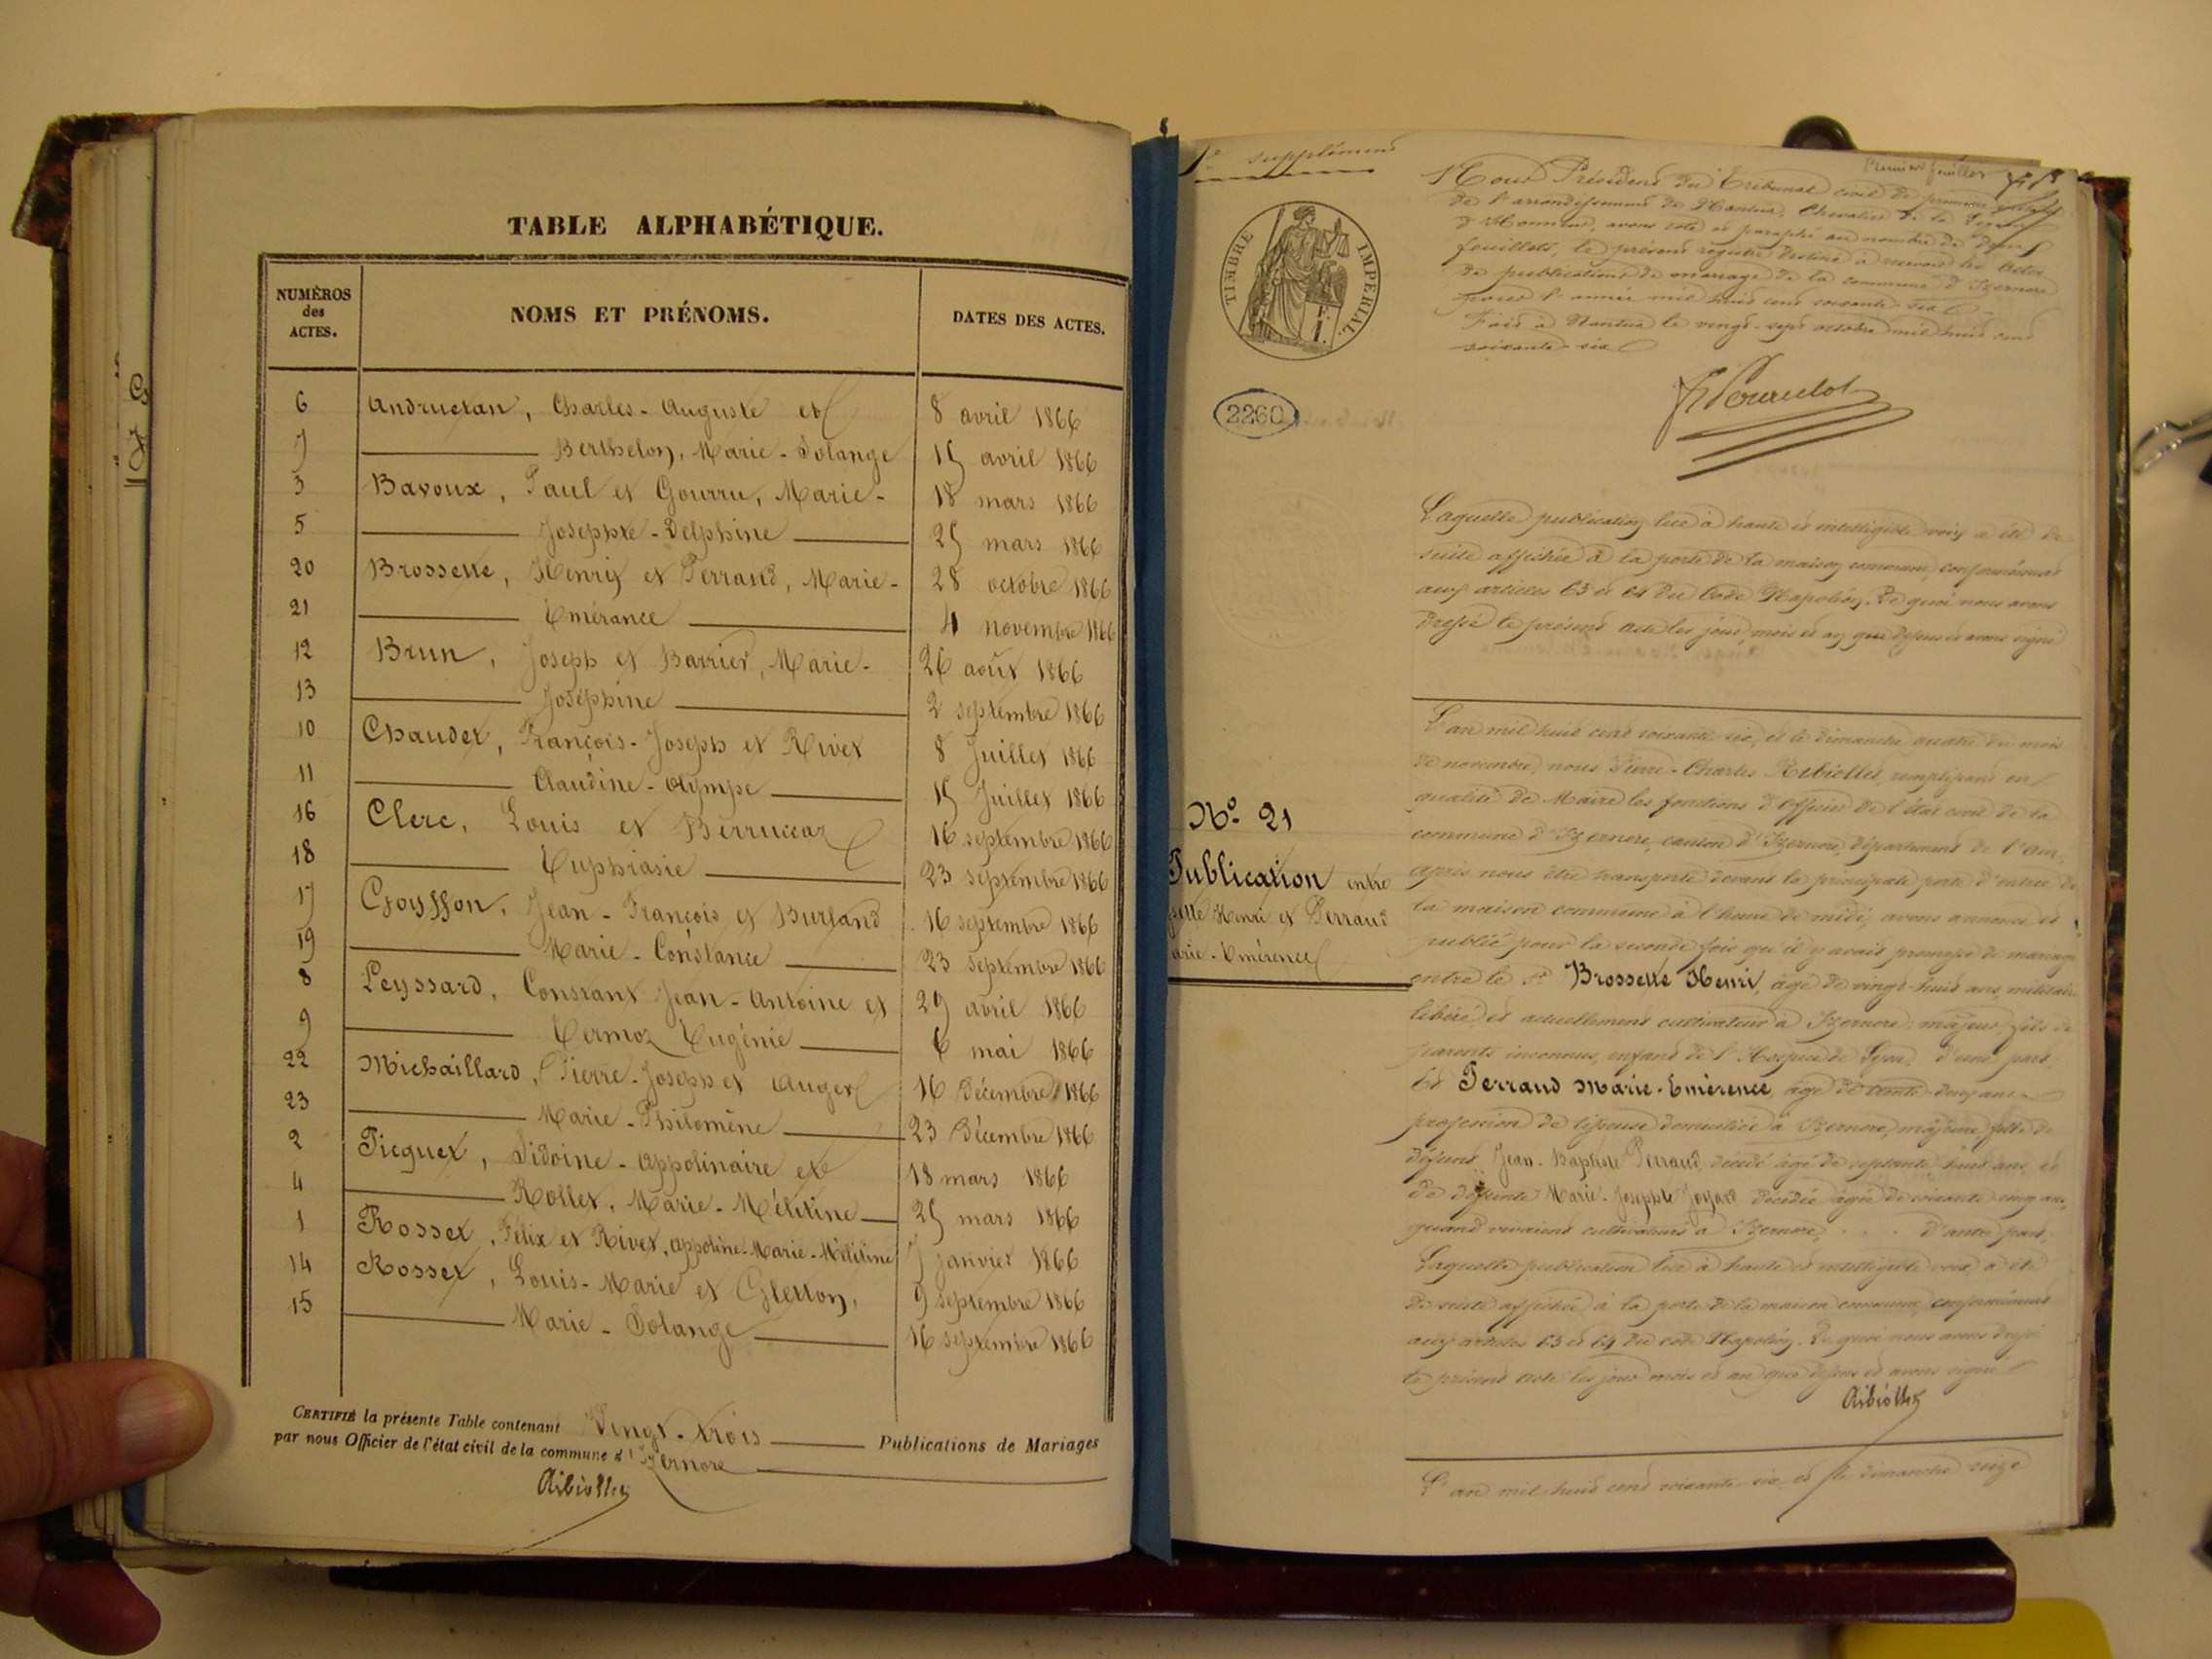 TABLE ALPHABÉTIQUE.
NUMÉROS des ACTES.
NOMS ET PRÉNOMS.
DATES DES ACTES.
6 Andruétan, Charles-Auguste et 8 avril 1866
7 Berthelon, Marie-Solange 15 avril 1866
3 Bavoux, Paul et Gourru, Marie- 18 mars 1866
5 Josephte-Delphine 25 mars 1866
20 Brossette, Henry et Perraud, Marie- 28 octobre 1866
21 Emérance 4 novembre 1866
12 Brun, Joseph et Barrier, Marie- 26 août 1866
13 Joséphine 2 septembre 1866
10 Chaudet, François-Joseph et Rivet 8 Juillet 1866
11 Claudine-Olympe 15 Juillet 1866
16 Clerc, Louis et Berruccaz 16 septembre 1866
18 Euphrasie 23 septembre 1866
17 Goyffon, Jean-François et Burfand 16 septembre 1866
19 Marie-Constance 23 septembre 1866
8 Leyssard, Constant Jean-Antoine et 29 avril 1866
9 Eugénie 6 mai 1866
22 Michaillard, Pierre-Joseph et Auger 16 Décembre 1866
23 Marie-Philomène 23 Décembre 1866
2 Picquet, Sidoine-Appolinaire et 18 mars 1866
4 Rollet, Marie-Mélitine 25 mars 1866
1 Rosset, Félix et Rivet, Appoline-Marie-Mélitine 7 janvier 1866
14 Rosset, Louis-Marie et Gletton, 9 septembre 1866
15 Marie-Solange 16 septembre 1866
CERTIFIÉ la présente Table contenant Vingt-trois Publications de Mariages
par nous Officier de l'état civil de la commune d'Izernore
Ribiollet
supplément
TIMBRE IMPÉRIAL.
2260
premier feuillet
Nous Président du Tribunal civil de première
de l'arrondissement de Nantua, Chevalier de la Légion
d'Honneur, avons coté et paraphé au nombre de deux
feuillets, le présent registre destiné à recevoir les actes
de publications de mariage de la commune d'Izernore
pour l'année mil huit cent soixante-six
Fait à Nantua le vingt-sept octobre mil huit cent
soixante-six
Laquelle publication lue à haute et intelligible voix a été de
suite affichée à la porte de la maison commune, conformément
aux articles 63 et 64 du Code Napoléon. De quoi nous avons
dressé le présent acte les jour, mois et an que dessus et avons signé
L'an mil huit cent soixante-six, et le dimanche quatre du mois
de novembre, nous Pierre-Charles Ribiollet, remplissant en
qualité de Maire les fonctions d'officier de l'état civil de la
commune d'Izernore, canton d'Izernore, département de l'Ain,
après nous être transporté devant la principale porte d'entrée de
la maison commune à l'heure de midi, avons annoncé et
publié pour la seconde fois qu'il y avait promesse de mariage
entre le Sr Brossette Henri, âgé de vingt-huit ans, militaire
libéré et actuellement cultivateur à Izernore, majeur, fils de
parents inconnus, enfant de l'Hospice de Lyon, d'une part.
Et Perraud Marie-Emérence, âgée de trente-deux ans
profession de domiciliée à Izernore, majeure fille de
défunt Jean-Baptiste Perraud décédé âgé de septante-huit ans, et
de défunte Marie-Josephte Joyard décédée âgée de soixante cinq ans,
quand vivaient cultivateurs à Izernore, . . . d'autre part.
Laquelle publication lue à haute et intelligible voix, a été
de suite affichée à la porte de la maison commune, conformément
aux articles 63 et 64 du code Napoléon. De quoi nous avons dressé
le présent acte les jour mois et an que dessus et avons signé
Ribiollet
No 21
Publication entre
sette Henri et Perraud
arie-Emérence
L'an mil huit cent soixante-six, et le dimanche seize